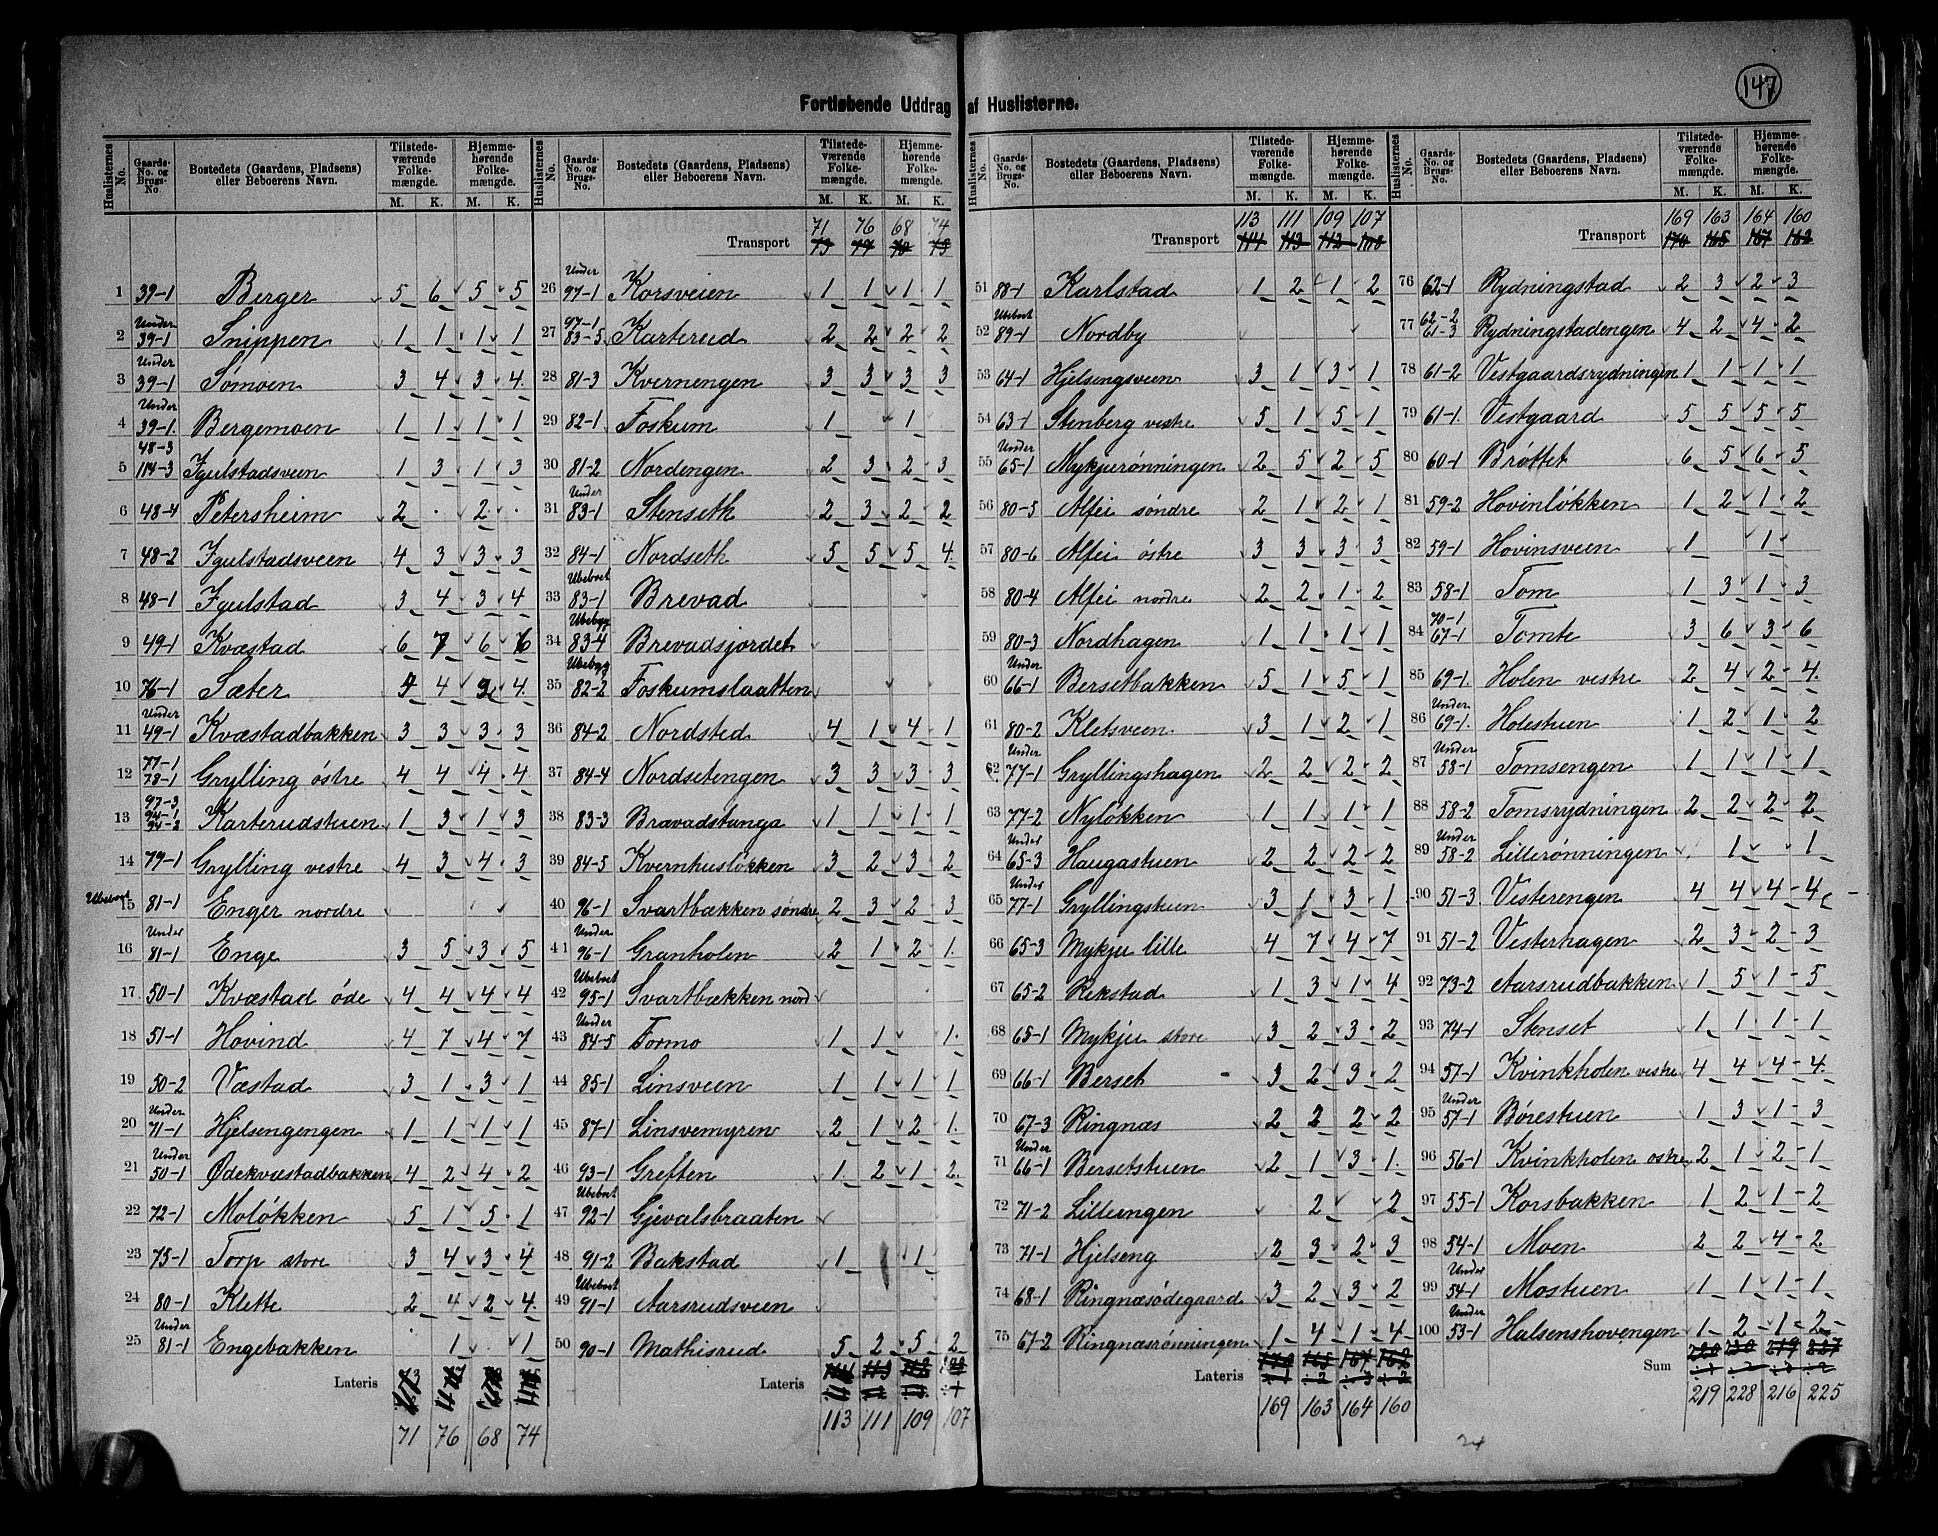 147
Fortløbende Uddrag af Huslisterne.
Huslisternes No. | Gaards-No. og Brugs-No. | Bostedets (Gaardens, Pladsens) eller Beboerens Navn. | Tilstedeværende Folkemængde. M. K. | Hjemmehørende Folkemængde. M. K.
1 39-1 Berger 5 6 5 5
2 Under 39-1 Snippen 1 1 1 1
3 Under 39-1 Sømoen 3 4 3 4
4 Under 39-1 Bergemoen 1 1 1 1
5 48-3 114-3 Igulstadsveen 1 3 1 3
6 48-4 Petersheim 2 . 2 .
7 48-2 Igulstadsveen 4 3 3 3
8 48-1 Igulstad 3 4 3 4
9 49-1 Kvæstad 6 7 6 6
10 76-1 Sæter 4 4
11 Under 49-1 Kvæstadbakken 3 3 3 3
12 77-1 78-1 Grylling østre 4 4 4 4
13 97-3 94-1 94-2 Karterudstuen 1 3 1 3
14 79-1 Grylling vestre 4 3 4 3
Ubeboet 15 81-1 Enger nordre
16 Under 81-1 Enge 3 5 3 5
17 50-1 Kvæstad øde 4 4 4 4
18 51-1 Hovind 4 7 4 7
19 50-2 Væstad 3 1 3 1
20 Under 71-1 Hjelsengengen 1 1 1 1
21 Under 50-1 Ødekvæstadbakken 4 2 4 2
22 72-1 Moløkken 5 1 5 1
23 75-1 Torp store 3 4 3 4
24 80-1 Klette 2 4 2 4
25 Under 81-1 Engebakken 1 1
Lateris
71 76 68 74
Huslisternes No. | Gaards-No. og Brugs-No. | Bostedets (Gaardens, Pladsens) eller Beboerens Navn. | Tilstedeværende Folkemængde. M. K. | Hjemmehørende Folkemængde. M. K.
71 76 68 74
Transport 73 77 70 75
26 Under 97-1 Korsveien 1 1 1 1
27 97-1 83-5 Karterud 2 2 2 2
28 81-3 Kvernengen 3 3 3 3
29 82-1 Foskum 1 1
30 81-2 Nordengen 2 3 2 3
31 Under 83-1 Stenseth 2 3 2 2
32 84-1 Nordseth 5 5 5 4
33 Ubeboet 83-1 Brevad
34 Ubebyg 83-4 Brevadsjordet
35 Ubebyg 82-2 Foskumslaatten
36 84-2 Nordsted 4 1 4 1
37 84-4 Nordsetengen 3 3 3 3
38 83-3 Brævadstanga 1 1 1 1
39 84-5 Kvernhusløkken 3 2 3 2
40 96-1 Svartbækken søndre 2 3 2 3
41 Under 96-1 Granholen 2 1 2 1
42 Ubeboet 95-1 Svartbækken nord
43 Under 84-5 Formo 1 1 1
44 85-1 Linsveen 1 1 1 1
45 87-1 Linsvemyren 2 1 2 1
46 93-1 Greften 1 2 1 2
47 Ubeboet 92-1 Gjevalsbraaten
48 91-2 Bakstad 1 1
49 Ubeboet 91-1 Aarsrudsveen
50 90-1 Mathisrud 5 2 5 2
Lateris
113 111 109 107
Huslisternes No. | Gaards-No. og Brugs-No. | Bostedets (Gaardens, Pladsens) eller Beboerens Navn. | Tilstedeværende Folkemængde. M. K. | Hjemmehørende Folkemængde. M. K.
113 111 109 107
Transport 114 113 112 108
51 88-1 Karlstad 1 2 1 2
52 Ubeboet 89-1 Nordby
53 64-1 Hjelsengsveen 3 1 3 1
54 63-1 Stenberg vestre 5 1 5 1
55 Under 65-1 Mykjurønningen 2 5 2 5
56 80-5 Alfei søndre 2 1 2 1
57 80-6 Alfei østre 3 3 3 3
58 80-4 Alfei nordre 2 2 1 2
59 80-3 Nordhagen 1 1 1 1
60 Under 66-1 Bersetbakken 5 1 5 1
61 80-2 Kletsveen 3 1 2 1
62 Under 77-1 Gryllingshagen 2 2 2 2
63 77-2 Nyløkken 1 1 1 1
64 Under 65-3 Haugastuen 2 2 2 2
65 Under 77-1 Gryllingstuen 3 1 3 1
66 65-3 Mykju lille 4 7 4 7
67 65-2 Rekstad 1 3 1 4
68 65-1 Mykju store 3 2 3 2
69 66-1 Berset 3 2 3 2
70 67-3 Ringnæs 2 2 2 2
71 Under 66-1 Bersetstuen 2 1 3 1
72 71-2 Lilleengen 2 2
73 71-1 Hjelseng 2 3 2 3
74 68-1 Ringnæsødegaard 3 2 3 2
75 67-2 Ringnæsrønningen 1 4 1 4
Lateris
169 163 164 160
Huslisternes No. | Gaards-No. og Brugs-No. | Bostedets (Gaardens, Pladsens) eller Beboerens Navn. | Tilstedeværende Folkemængde. M. K. | Hjemmehørende Folkemængde. M. K.
169 163 164 160
Transport 170 165 167 162
76 62-1 Rydningstad 2 3 2 3
77 62-2 61-3 Rydningstadengen 4 2 4 2
78 61-2 Vestgaardsrydningen 1 1 1 1
79 61-1 Vestgaard 5 5 5 5
80 60-1 Brøttet 6 5 6 5
81 59-2 Hovinløkken 1 2 1 2
82 59-1 Hovinsveen 1 1
83 58-1 Tom 1 3 1 3
84 70-1 67-1 Tomte 3 6 3 6
85 69-1 Holen vestre 2 4 2 4
86 Under 69-1 Holestuen 1 2 1 2
87 Under 58-1 Tomsengen 1 1 1 1
88 58-2 Tomsrydningen 2 2 2 2
89 Under 58-2 Lillerønningen 1 1
90 51-3 Vesterengen 4 4 4 4
91 51-2 Vesterhagen 2 3 2 3
92 73-2 Aarsrudbakken 1 5 1 5
93 74-1 Stenset 1 1 1 1
94 57-1 Kvinkholen vestre 4 4 4 4
95 Under 57-1 Børestuen 1 3 1 3
96 56-1 Kvinkholen østre 2 1 2 1
97 55-1 Korsbakken 1 2 1 2
98 54-1 Moen 2 2 4 2
99 Under 54-1 Mostuen 1 1 1 1
100 Under 53-1 Halsenshovengen 1 2 1 2
Sum 220 230 219 227
219 228 216 225
24